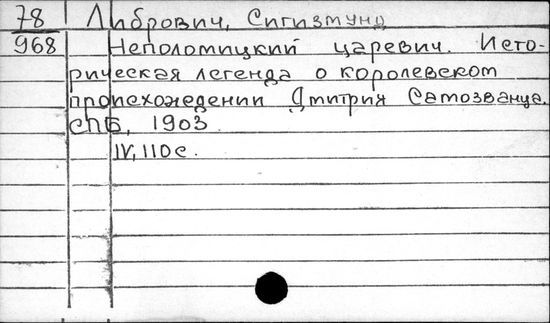 78 Либрович, Сигизмунд
968 Неполомицкий царевич. Исто-
рическая легенда о королевском
происхождении Дмитрия Самозванца.
СПБ, 1903.
IV, 110 с.